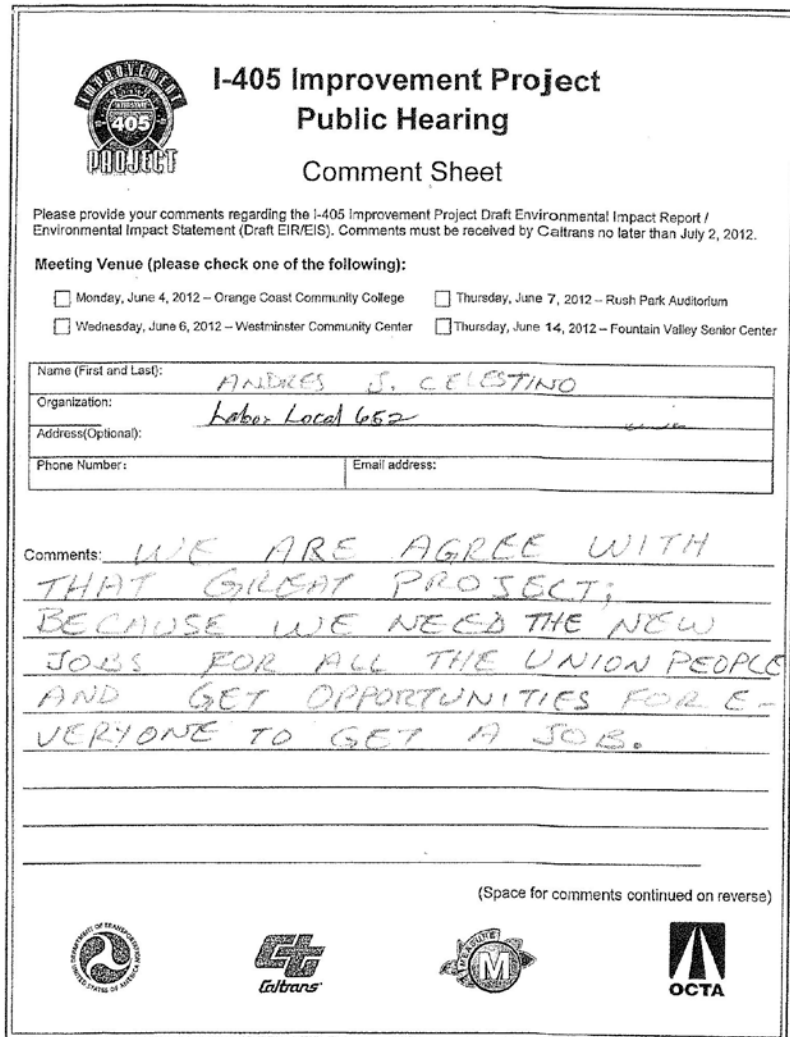 IMPROVEMENT
INTERSTATE
405
PROJECT
I-405 Improvement Project
Public Hearing
Comment Sheet
Please provide your comments regarding the I-405 Improvement Project Draft Environmental Impact Report /
Environmental Impact Statement (Draft EIR/EIS). Comments must be received by Caltrans no later than July 2, 2012.
Meeting Venue (please check one of the following):
Monday, June 4, 2012 – Orange Coast Community College
Thursday, June 7, 2012 – Rush Park Auditorium
Wednesday, June 6, 2012 – Westminster Community Center
Thursday, June 14, 2012 – Fountain Valley Senior Center
Name (First and Last): ANDRES J. CELESTINO
Organization: Labor Local 652
Address(Optional):
Phone Number:
Email address:
Comments: WE ARE AGREE WITH
THAT GREAT PROJECT;
BECAUSE WE NEED THE NEW
JOBS FOR ALL THE UNION PEOPLE
AND GET OPPORTUNITIES FOR E-
VERYONE TO GET A JOB.
(Space for comments continued on reverse)
DEPARTMENT OF TRANSPORTATION
UNITED STATES OF AMERICA
Caltrans
MEASURE
M
OCTA